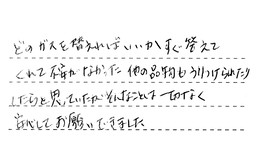 どのガスを替えればいいかすぐ答えて
くれて不安がなかった 他の品物もうりつけられたり
したらと思っていたがそんなことは一切なく
安心してお願いできました